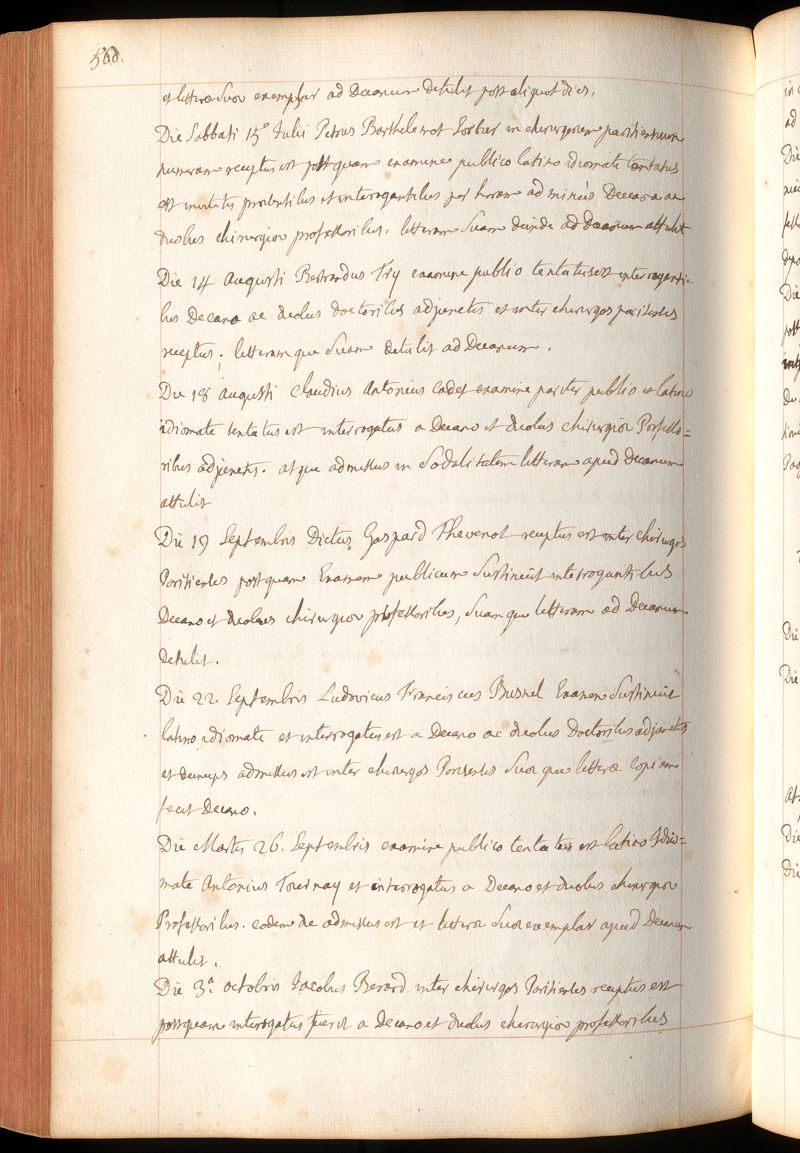 560.
et litteræ suæ exemplar ad Decanum detulit post aliquot dies.
Die Sabbati 15º Julii Petrus Barthelemot Sorbier in chirurgorum parisiensium
numerum receptus est postquam examine publico latino idiomate tentatus
est invitatis præsentibus et interrogantibus per horam ad minus Decano ac
duobus chirurgiæ professoribus. litteram suam deinde ad Decanum attulit
Die 14 Augusti Bertrandus Try examine publico tentatus est interroganti-
bus Decano ac duobus doctoribus adjunctis et inter chirurgos parisienses
receptus; litteramque suam detulit ad Decanum.
Die 18 augusti Claudius Antonius Cadet examine pariter publico et latino
idiomate tentatus est interrogatus a Decano et duobus chirurgiæ Professo=
ribus adjunctis. atque admissus in Sodalitatem litteram apud Decanum
attulit
Die 19 Septembris Dictus Gaspard Thevenot receptus est inter chirurgos
Parisienses postquam Examen publicum Sustinuit interrogantibus
Decano et duobus chirurgiæ professoribus, suamque litteram ad Decanum
detulit.
Die 22 Septembris Ludovicus Franciscus Busnel Examen Sustinuit
latino idiomate et interrogatus est a Decano ac duobus Doctoribus adjunctis
et deinceps admissus est inter chirurgos Parisienses suæque litteræ copiam
fecit Decano.
Die Martis 26. Septembris examine publico tentatus est latino Idio=
mate Antonius Tournay et interrogatus a Decano et duobus chirurgiæ
Professoribus. eodem die admissus est et litteræ suæ exemplar apud Decanum
attulit.
Die 3ª. octobris Jacobus Berard inter chirurgos Parisienses receptus est
postquam interrogatus fuerit a Decano et duobus chirurgiæ professoribus